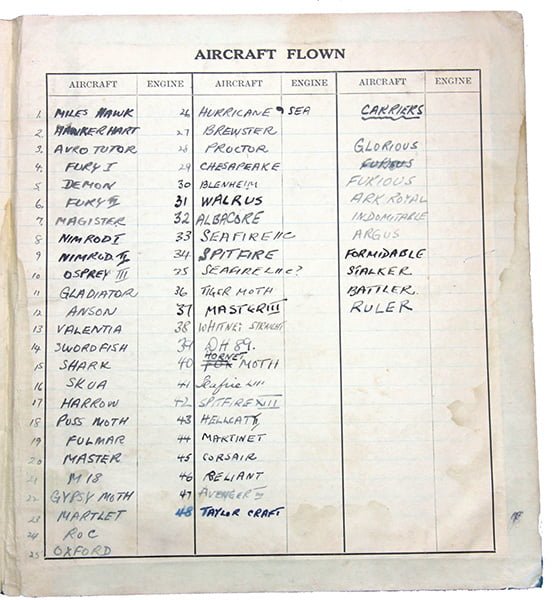 AIRCRAFT FLOWN
AIRCRAFT ENGINE AIRCRAFT ENGINE AIRCRAFT ENGINE
1. MILES HAWK
2. HAWKER HART
3. AVRO TUTOR
4. FURY I
5 DEMON
6. FURY II
7. MAGISTER
8 NIMROD I
9 NIMROD II
10 OSPREY III
11 GLADIATOR
12 ANSON
13 VALENTIA
14 SWORDFISH
15 SHARK
16 SKUA
17 HARROW
18 PUSS MOTH
19 FULMAR
20 MASTER
21 M18
22 GYPSY MOTH
23 MARTLET
24 ROC
25 OXFORD
26 HURRICANE & SEA
27 BREWSTER
28 PROCTOR
29 CHESAPEAKE
30 BLENHEIM
31 WALRUS
32 ALBACORE
33 SEAFIRE IIC
34 SPITFIRE
35 SEAFIRE LIIC?
36 TIGER MOTH
37 MASTER III
38 WHITNEY STRAIGHT
39 DH 89.
HORNET
40 FOX MOTH
41 Seafire LIII
42 SPITFIRE XII
43 HELLCAT II
44 MARTINET
45 CORSAIR
46 RELIANT
47 AVENGER II
48 TAYLOR CRAFT
CARRIERS
GLORIOUS
FURIOUS
FURIOUS
ARK ROYAL
INDOMITABLE
ARGUS
FORMIDABLE
STALKER
BATTLER.
RULER